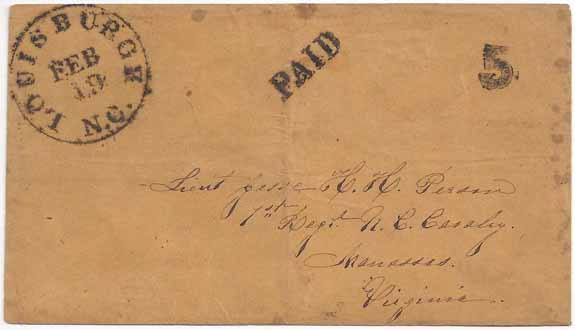 LOUISBURGH N.C.
FEB
19
PAID
5
Lieut Jesse H. H. Person
1st Regt. N. C. Cavalry.
Manassas.
Virginia.